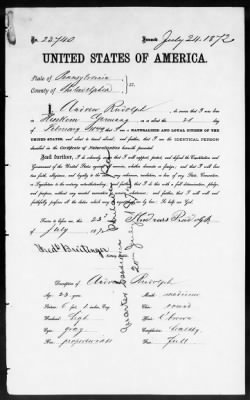 No. 22740 Issued July 24. 1872
UNITED STATES OF AMERICA.
State of Pennsylvania
County of Philadelphia } ss.
I Andrew Rudolph, do swear that I was born
in Germany on or about the day of
February, that I am a NATURALIZED AND LOYAL CITIZEN OF THE
UNITED STATES, and about to travel abroad, and further, that I am the IDENTICAL PERSON
described in the Certificate of Naturalization herewith presented.
And further, I do solemnly swear that I will support, protect, and defend the Constitution and
Government of the United States against all enemies, whether domestic or foreign, and that I will bear
true faith, allegiance, and loyalty to the same, any ordinance, resolution, or law of any State, Convention
or Legislature to the contrary notwithstanding; and further, that I do this with a full determination, pledge,
and purpose, without any mental reservation or evasion whatsoever; and further, that I will well and
faithfully perform all the duties which may be required of me by law: So help me God.
Sworn to before me, this 23d
day of July 1872
Description of Andrew Rudolph
Age:
Mouth: medium
Stature:
Chin: round
Forehead: high
Hair: brown
Eyes: gray
Complexion: healthy
Nose:
Face: full
Quarter Sessions